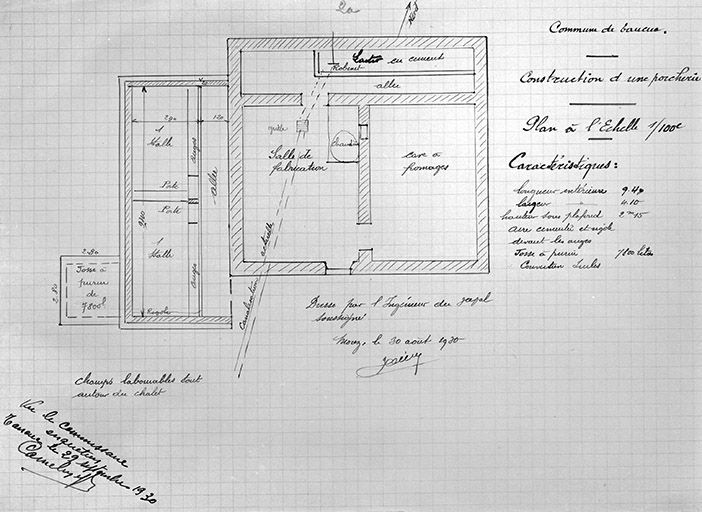 2a
Commune de
Construction d une porcherie
Plan à l'Echelle 1/100e
Caractéristiques:
longueur intérieure 9.40
largeur 4.10
hauteur sous plafond 2m15
aire cimentée et
devant les auges
Fosse à purin 7800 litres
Couverture tuiles
en ciment
Robinet
allée
290
120
1
Stalle
Auges
grille
Chaudière
Salle de
fabrication
cave à
fromages
Porte
Porte
allée
940
1
Stalle
Auges
actuelle
Canalisation
2.80
2.80
Fosse à
purin
de
7800l
Rigole
Dressé par l'Ingénieur du
soussigné
Morez, le 30 août 1930
champs labourables tout
autour du chalet
Vu le commissaire
enquêteur
le 29 septembre 1930